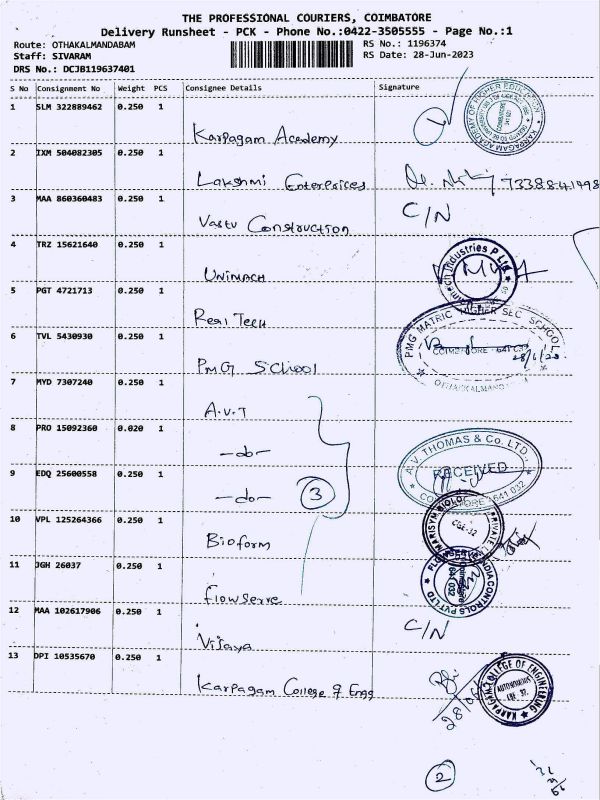 THE PROFESSIONAL COURIERS, COIMBATORE
Delivery Runsheet - PCK - Phone No.:0422-3505555 - Page No.:1
Route: OTHAKALMANDABAM RS No.: 1196374
Staff: SIVARAM RS Date: 28-Jun-2023
DRS No.: DCJB119637401
S No Consignment No Weight PCS Consignee Details Signature
1 SLM 322889462 0.250 1
Karpagam Academy
KARPAGAM ACADEMY OF HIGHER EDUCATION
2 IXM 504082305 0.250 1
Lakshmi Enterprices 7338841998
3 MAA 860360483 0.250 1
Vastu Construction C/N
4 TRZ 15621640 0.250 1
UNIMACH
Industries P Ltd
5 PGT 4721713 0.250 1
Real Tech
6 TVL 5430930 0.250 1
PMG School
PMG MATRIC HIGHER SEC SCHOOL
COIMBATORE - 641 032
7 MYD 7307240 0.250 1
A.V.T
8 PRO 15092360 0.020 1
-do-
A.V. THOMAS & Co. LTD.,
RECEIVED
COIMBATORE - 641 032
9 EDQ 25600558 0.250 1
-do- 3
10 VPL 125264366 0.250 1
Bioform
MARISYM PRIVATE
CBE-32
11 JGH 26037 0.250 1
Flowserve
FLOWSERVE INDIA CONTROLS PVT LTD
Coimbatore
641 032
12 MAA 102617906 0.250 1
Vijaya C/N
13 DPI 10535670 0.250 1
Karpagam College of Engg
KARPAGAM COLLEGE OF ENGINEERING
AUTONOMOUS
CBE 32.
2